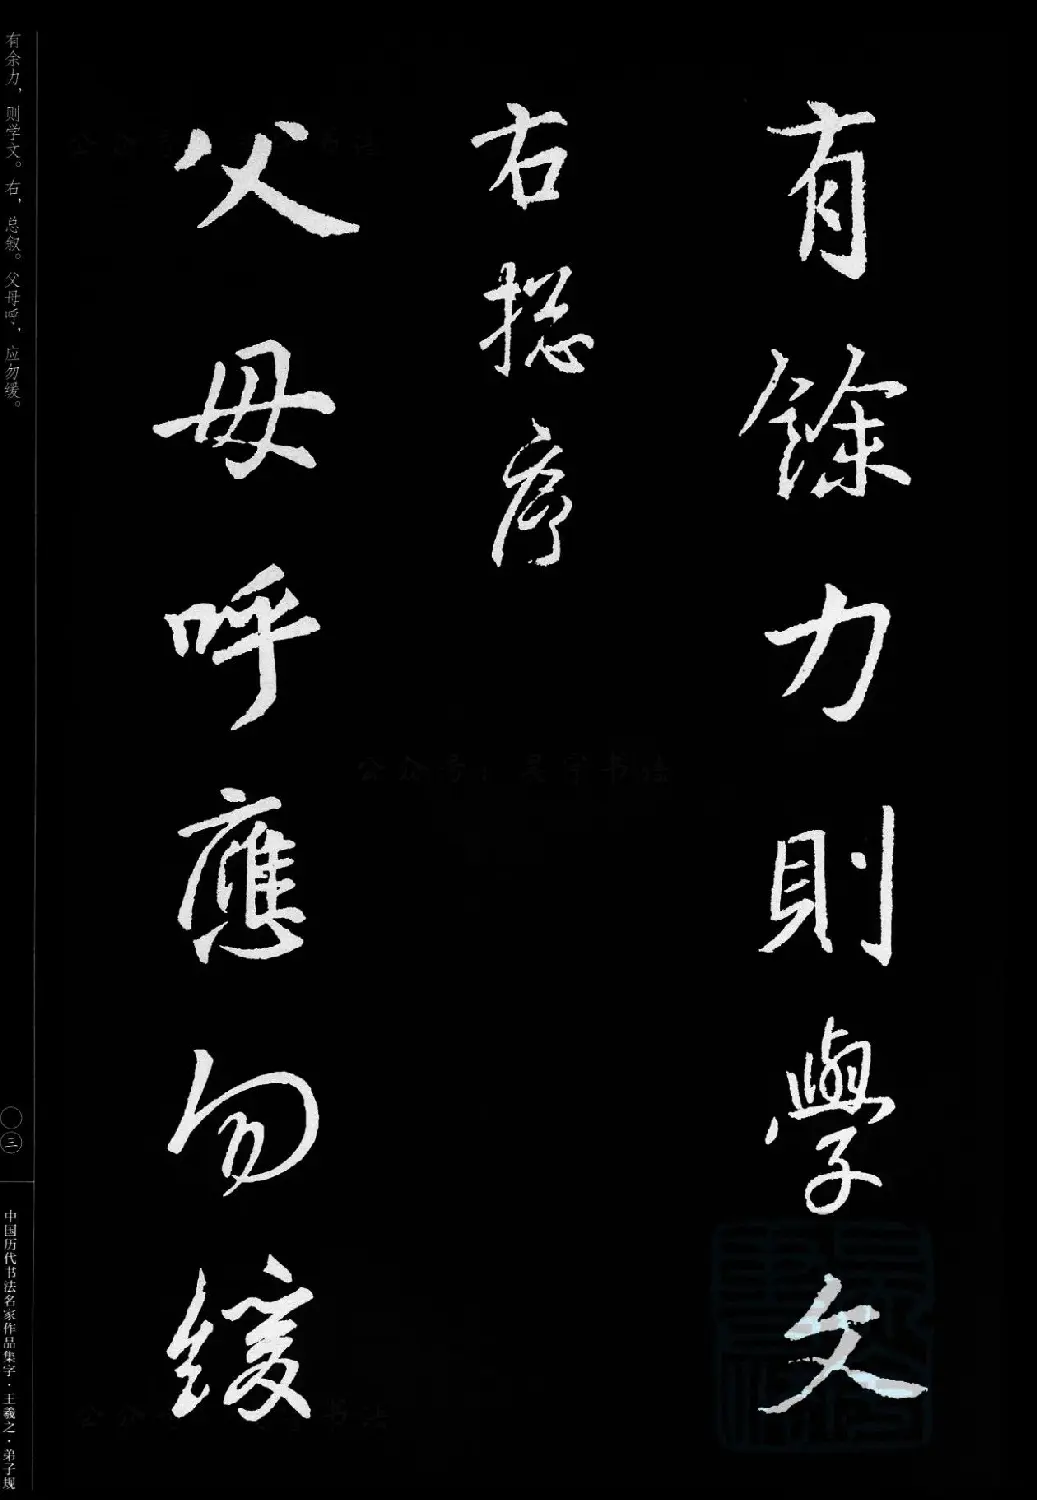 有餘力則學文
右揔序
父母呼應勿緩
有余力，则学文。右，总叙。父母呼，应勿缓。
〇三
中国历代书法名家作品集字·王羲之·弟子规